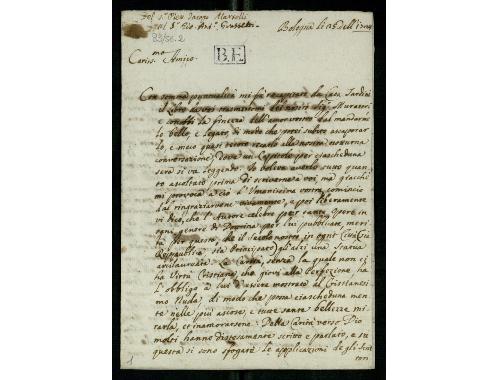 Del Sr. Pier Jacopo Martelli
al Sr. Gio. Ant.
Bologna li 25 dell'
93/sc.2
B.E.
Cariss.mo Amico
Con somma puntualità mi fu recapitato da Casa Sardini
il Libro trasmessomi del nostro Sig. Muratori
e conobbi la finezza dell'amor vostro dal mandarmelo
lo bello, e legato, di modo che potei subito assaporar
lo, e meco quasi tutta la nostra notturna
conversazione, dove un Capitolo per ciascheduna
sera si va leggendo. Io voleva averlo tutto quan
to ascoltato prima di scriverne a voi ma giacchè
mi provoca a ciò l'Umanissima vostra comincio
dal ringraziarvene vivamente, e poi liberamente
vi dico, che l'Autore celebre per tante Opere in
ogni genere di Dottrina per lui pubblicate meri
ta per questa, che il Secolo nostro in ogni Città (sia
Repubblica, sia Principato) gli alzi una Statua
La Carità, senza la quale non ci è
Virtù Cristiana, che giovi alla Perfezione, ha
l'obbligo a lui d'essere mostrata al Cristianesi
mo Nuda di modo che possa ciascheduna men
te nelle più ascose, e tutte sante bellezze mi
rarla, et innamorarsene. Della Carità verso Dio
molti hanno distesamente scritto e parlato, e su
questa si sono sfogate le applicazioni degli Scrit
tori
1